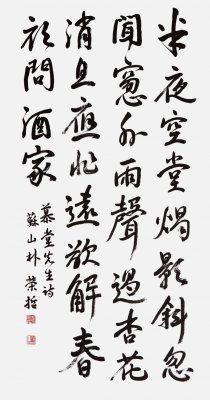 半夜空堂燭影斜忽
聞窓外雨聲過杏花
消息應非遠欲解春
衫問酒家
慕堂先生詩
蘇山朴榮哲